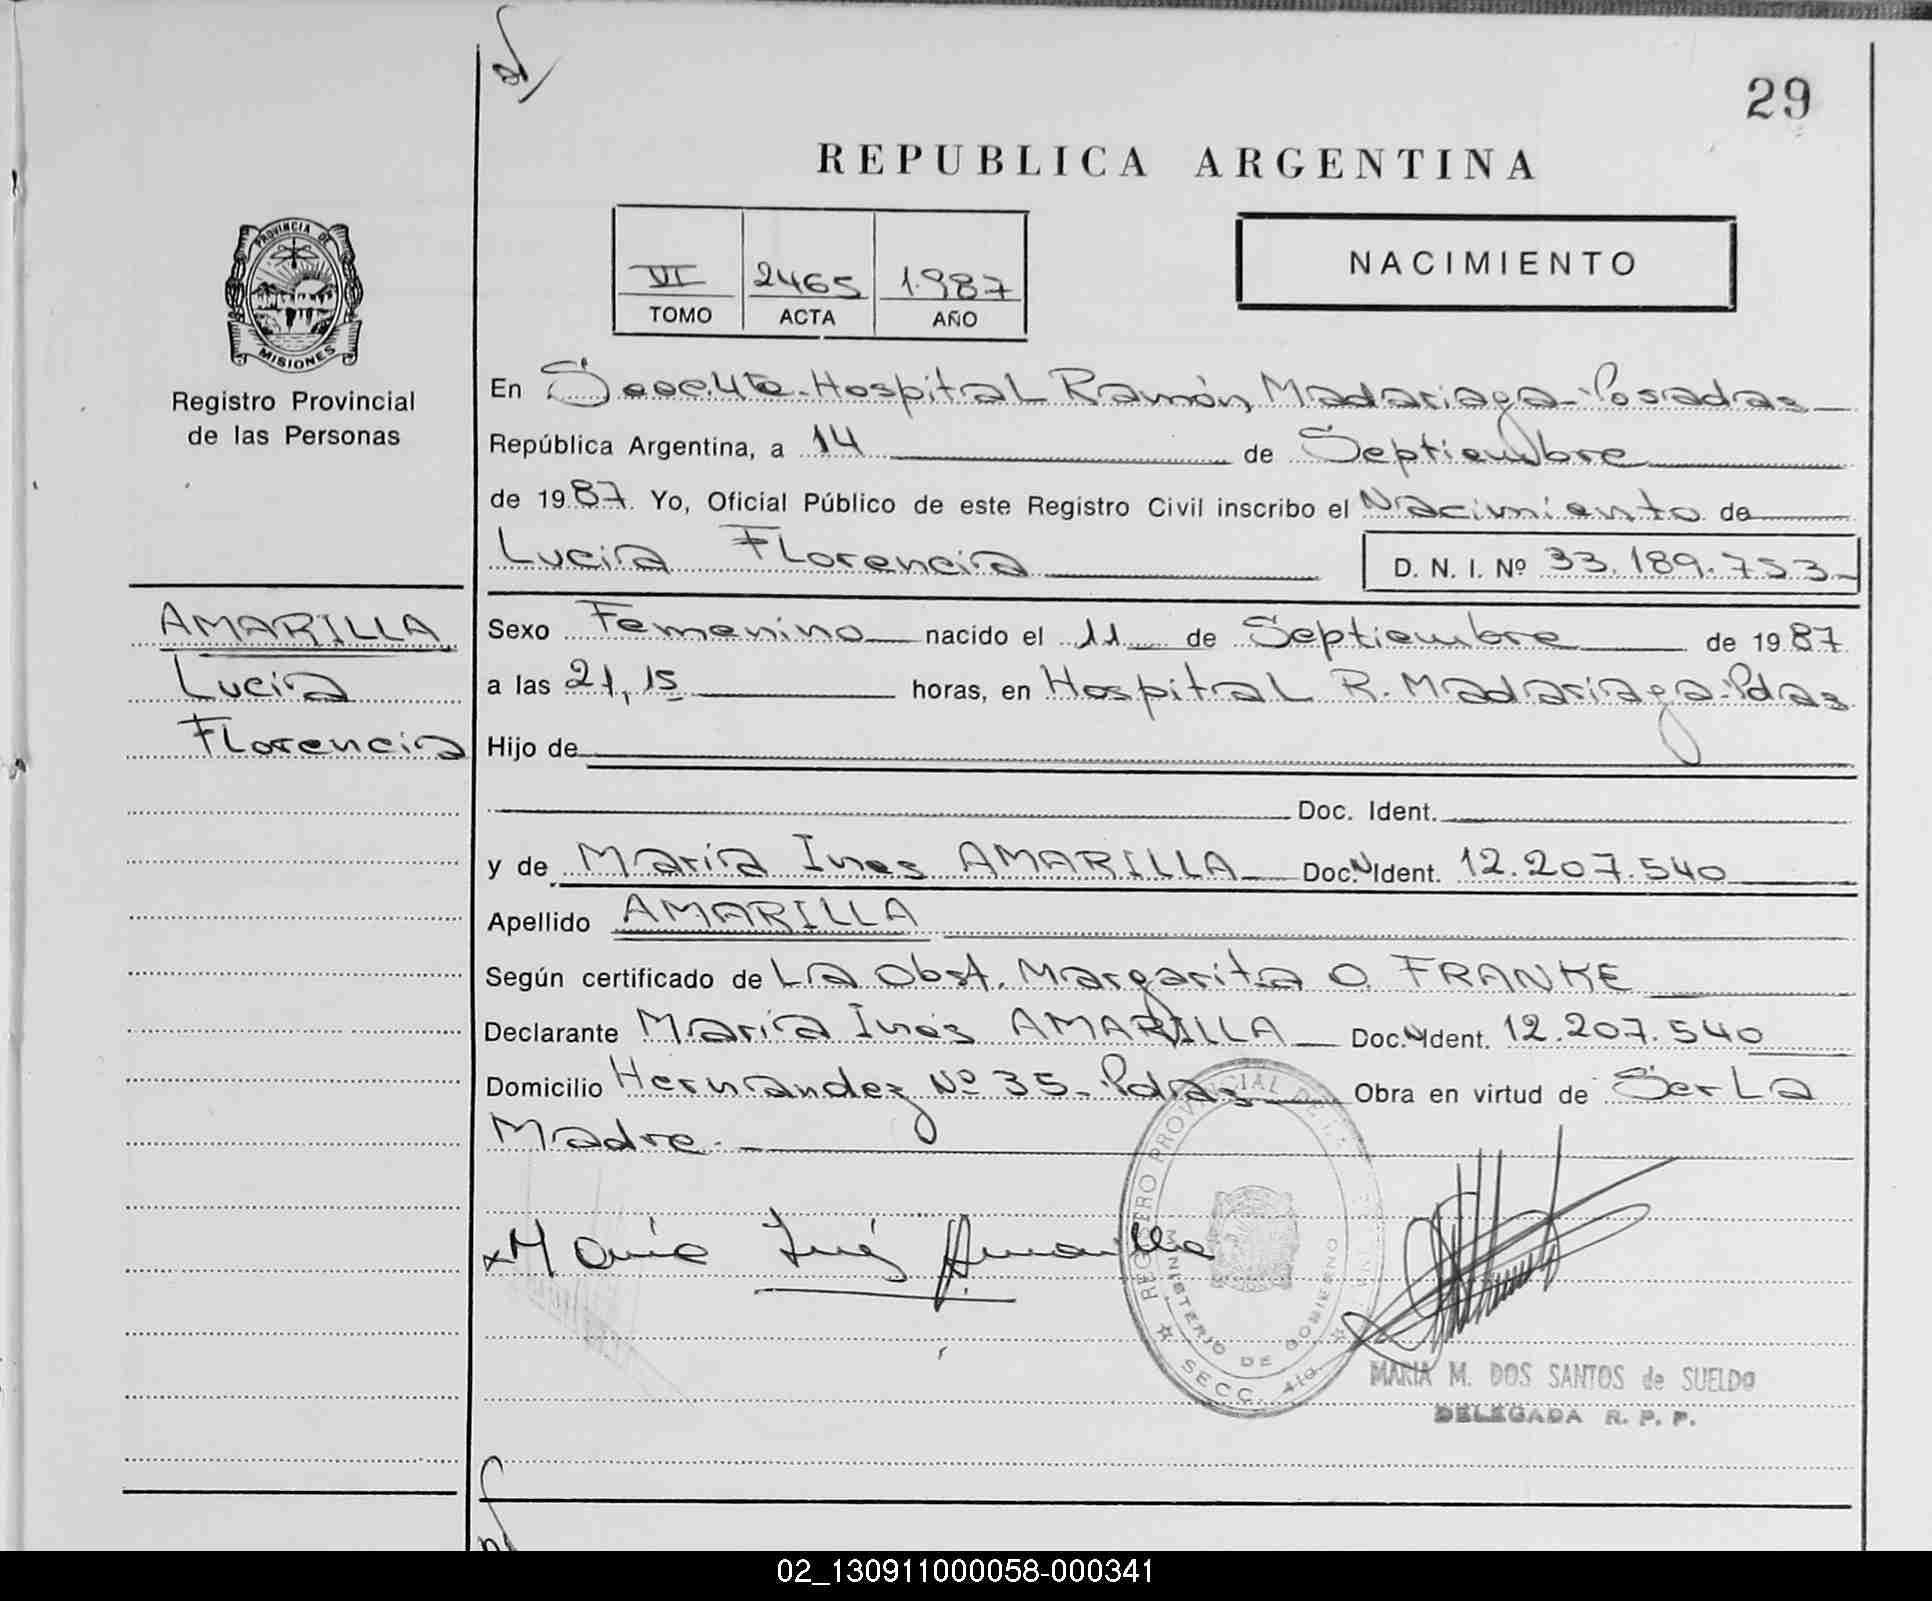 29
REPUBLICA ARGENTINA
VI 2465 1.987
TOMO ACTA AÑO
NACIMIENTO
PROVINCIA DE
MISIONES
Registro Provincial
de las Personas
En Secc. 4ta. Hospital Ramón Madariaga - Posadas
República Argentina, a 14 de Septiembre
de 1987. Yo, Oficial Público de este Registro Civil inscribo el Nacimiento de
Lucia Florencia D. N. I. Nº 33.189.753
AMARILLA
Lucia
Florencia
Sexo Femenino nacido el 11 de Septiembre de 1987
a las 21,15 horas, en Hospital R. Madariaga - Pdas
Hijo de
Doc. Ident.
y de María Ines AMARILLA Doc. N Ident. 12.207.540
Apellido AMARILLA
Según certificado de La Obst. Margarita O. FRANKE
Declarante María Inés AMARILLA Doc. N Ident. 12.207.540
Domicilio Hernandez Nº 35 - Pdas Obra en virtud de Ser La
Madre.
x María Inés Amarilla
REGISTRO PROVINCIAL DE LAS
MINISTERIO DE GOBIERNO
SECC. 4ta.
MARIA M. DOS SANTOS de SUELDO
DELEGADA R. P. P.
02_130911000058-000341